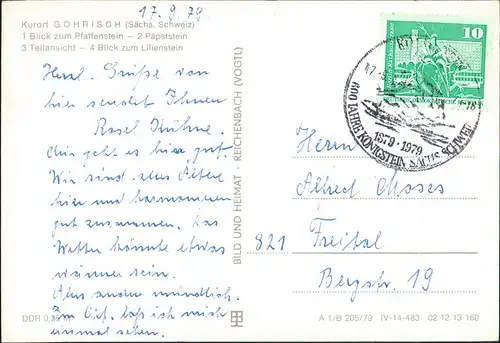 17. 9. 79.
Kurort GOHRISCH (Sächs. Schweiz)
1 Blick zum Pfaffenstein – 2 Papststein
3 Teilansicht – 4 Blick zum Lilienstein
Herzl. Grüße von
hier sendet Ihnen
Rosel Kühne.
Mir geht es hier gut.
Wir sind alles Ältere
hier und harmonieren
gut zusammen. Das
Wetter könnte etwas
wärmer sein.
Alles andere mündlich.
laß ich mich
einmal sehen.
DDR
BILD UND HEIMAT · REICHENBACH (VOGTL)
10
600 JAHRE KÖNIGSTEIN SÄCHS. SCHWEIZ
1379 - 1979
Herrn
Alfred Moses
821 Freital
Bergstr. 19
A 1/B 205/79 IV-14-483 02 12 13 160